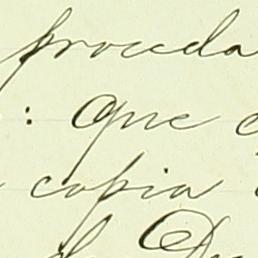 proceda
: Que
copia